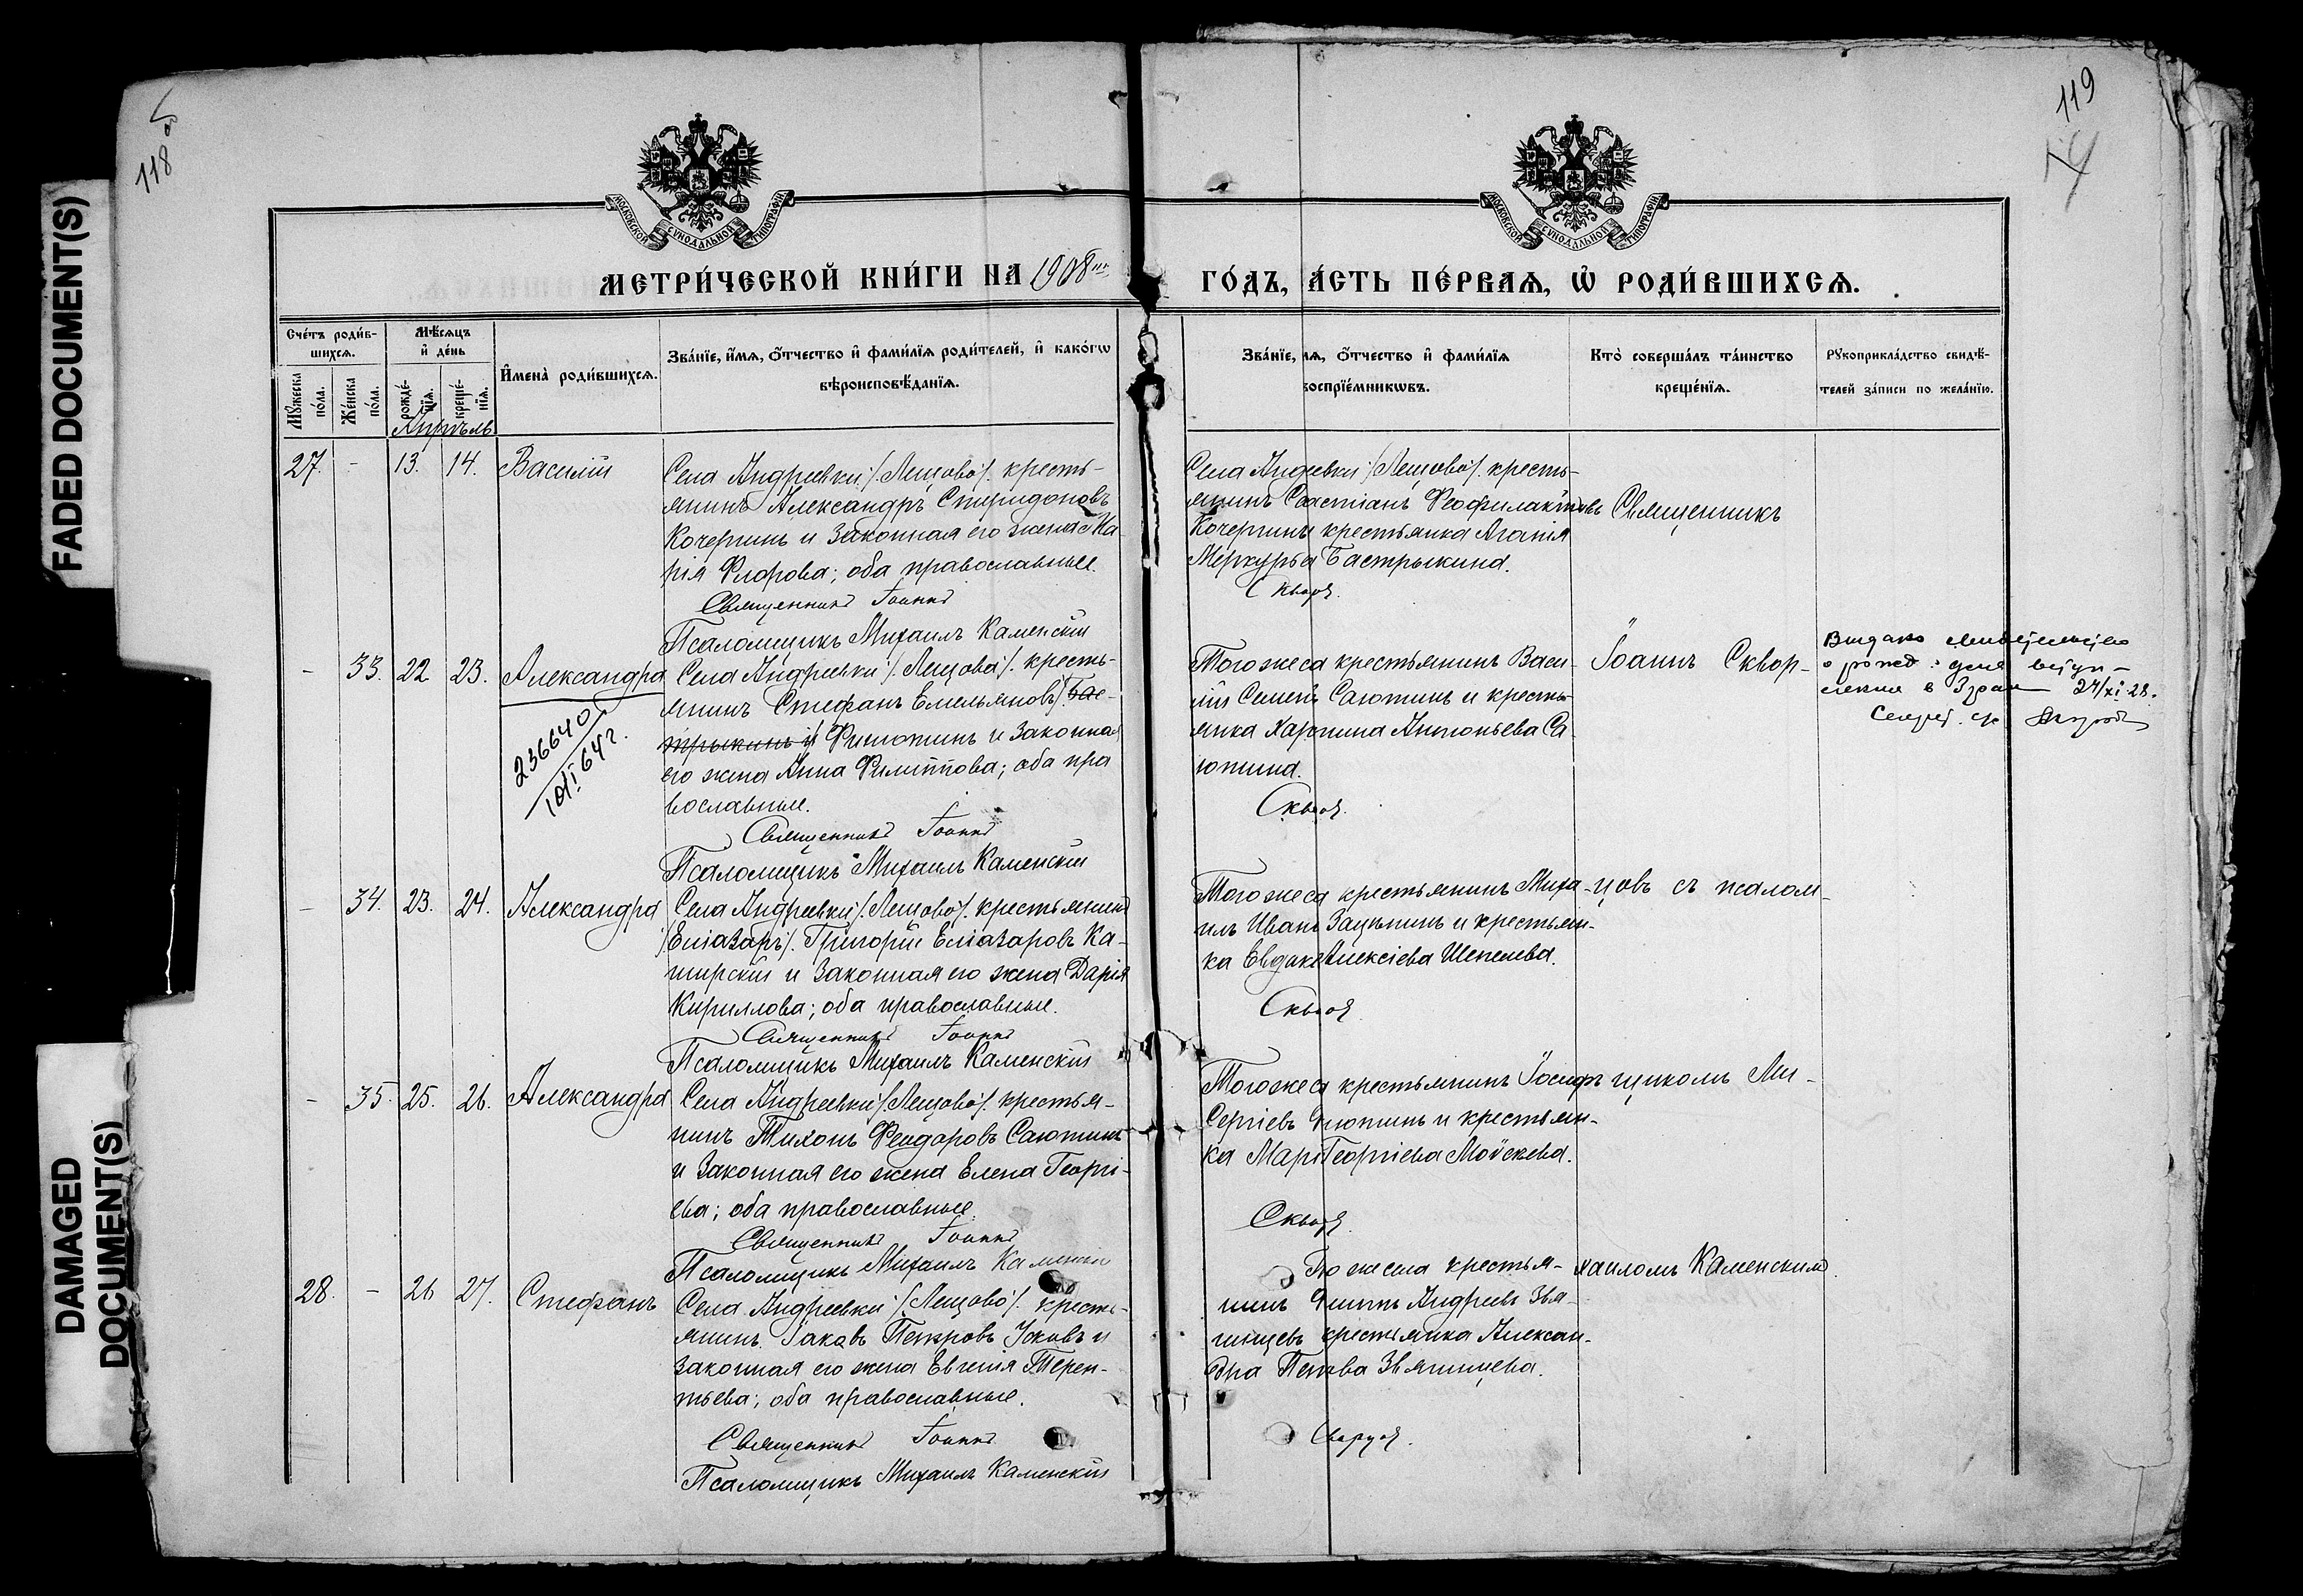 FADED DOCUMENT(S)
DAMAGED
DOCUMENT(S)
118 об
119
МОСКОВСКОЙ СѴНОДАЛЬНОЙ ТИПОГРАФІИ
МОСКОВСКОЙ СѴНОДАЛЬНОЙ ТИПОГРАФІИ
МЕТРИ́ЧЕСКОЙ КНИ́ГИ НА 1908
ГО́ДЪ, А́СТЬ ПЕ́РВАѦ, Ѡ҆ РОДИ́ВШИХСѦ.
Сче́тъ роди́в-
шихсѧ.
Мѣ́сѧцъ
и҆ де́нь
Мꙋ́жеска по́ла.
Же́нска по́ла.
рожде́-нїѧ.
креще́-нїѧ.
И҆мена̀ роди́вшихсѧ.
Зва́нїе, и҆́мѧ, ѻ҆́тчество и҆ фами́лїѧ роди́телей, и҆ како́гѡ
вѣроисповѣ́данїѧ.
Зва́нїе, мѧ, ѻ҆́тчество и҆ фами́лїѧ
воспрїе́мникѡвъ.
Кто̀ соверша́лъ та́инство
креще́нїѧ.
Рꙋкоприкла́дство свидѣ́-
телей за́писи по жела́нїю.
Апрѣль
27. - 13. 14. Василій
Села Андреевки /Лещово/. кресть-
янинъ Александръ Спиридоновъ
Кочергинъ и законная его жена Ма-
рія Флорова; оба православные.
Священникъ Іоаннъ
Псаломщикъ Михаилъ Каменскій
Села Андеевки /Лещово/. кресть-
янинъ Састіанъ Феофилактовъ
Кочергинъ крестьянка Агапія
Меркурьа Бастрыкина.
Скворц.
Священникъ
- 33. 22 23. Александра
236640
10/I 64 г.
Села Андреевки /Лещова/. кресть-
янинъ Стефанъ Емельяновъ /Бас-
трыкинъ и Филютинъ и законная
его жена Анна Филиппова; оба пра
вославные.
Священникъ Іоаннъ
Псаломщикъ Михаилъ Каменскій
Того же са крестьянинъ Васи-
лій Семенъ Саютинъ и кресть-
янка Харитина Антоньева Са
ютина.
Скворц.
Іоаннъ Сквор-
Выдано свидетельство
о рожд. для вступ-
ления в Зграк 24/XI 28.
Секрет. с/с
- 34. 23. 24. Александра
Села Андреевки /Лещово/. крестьянинъ
/Елiазаръ/. Григорій Елiазаровъ Ка-
ширскій и законная его жена Дарія
Кириллова; оба православные.
Священникъ Іоаннъ
Псаломщикъ Михаилъ Каменскій
Того же са крестьянинъ Миха-
илъ Ивано Зацѣпинъ и крестьян-
ка Евдоке Алексіева Шепелева.
Скворц.
цовъ съ псалом-
- 35. 25. 26. Александра
Села Андреевки /Лещово/. крестья-
нинъ Тихонъ Феодоровъ Саютинъ
и законная его жена Елена Георгі-
ева; оба православные.
Священникъ Іоаннъ
Псаломщикъ Михаилъ Каменскій
Того же са крестьянинъ Іосифъ
Сергіевъ лютинъ и крестьян-
ка Марі Георгіева Моисеева.
Скворц.
щикомъ Ми-
28. - 26 27. Стефанъ
Села Андреевки /Лещово/. кресть-
янинъ Іаковъ Петровъ Усковъ и
законная его жена Евгенія Терен-
тьева; оба православные.
Священникъ Іоаннъ
Псаломщикъ Михаилъ Каменскій
го же села крестья-
нинъ Андреевъ Звя-
гинцевъ крестьянка Алексан-
дра Петова Звягинцева.
Скворц.
хаиломъ Каменскимъ.